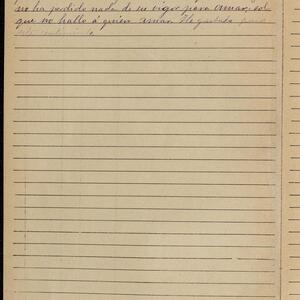 no ha perdido nada de su vigor para amar; sol
que no hallo á quien amar. He gustado para